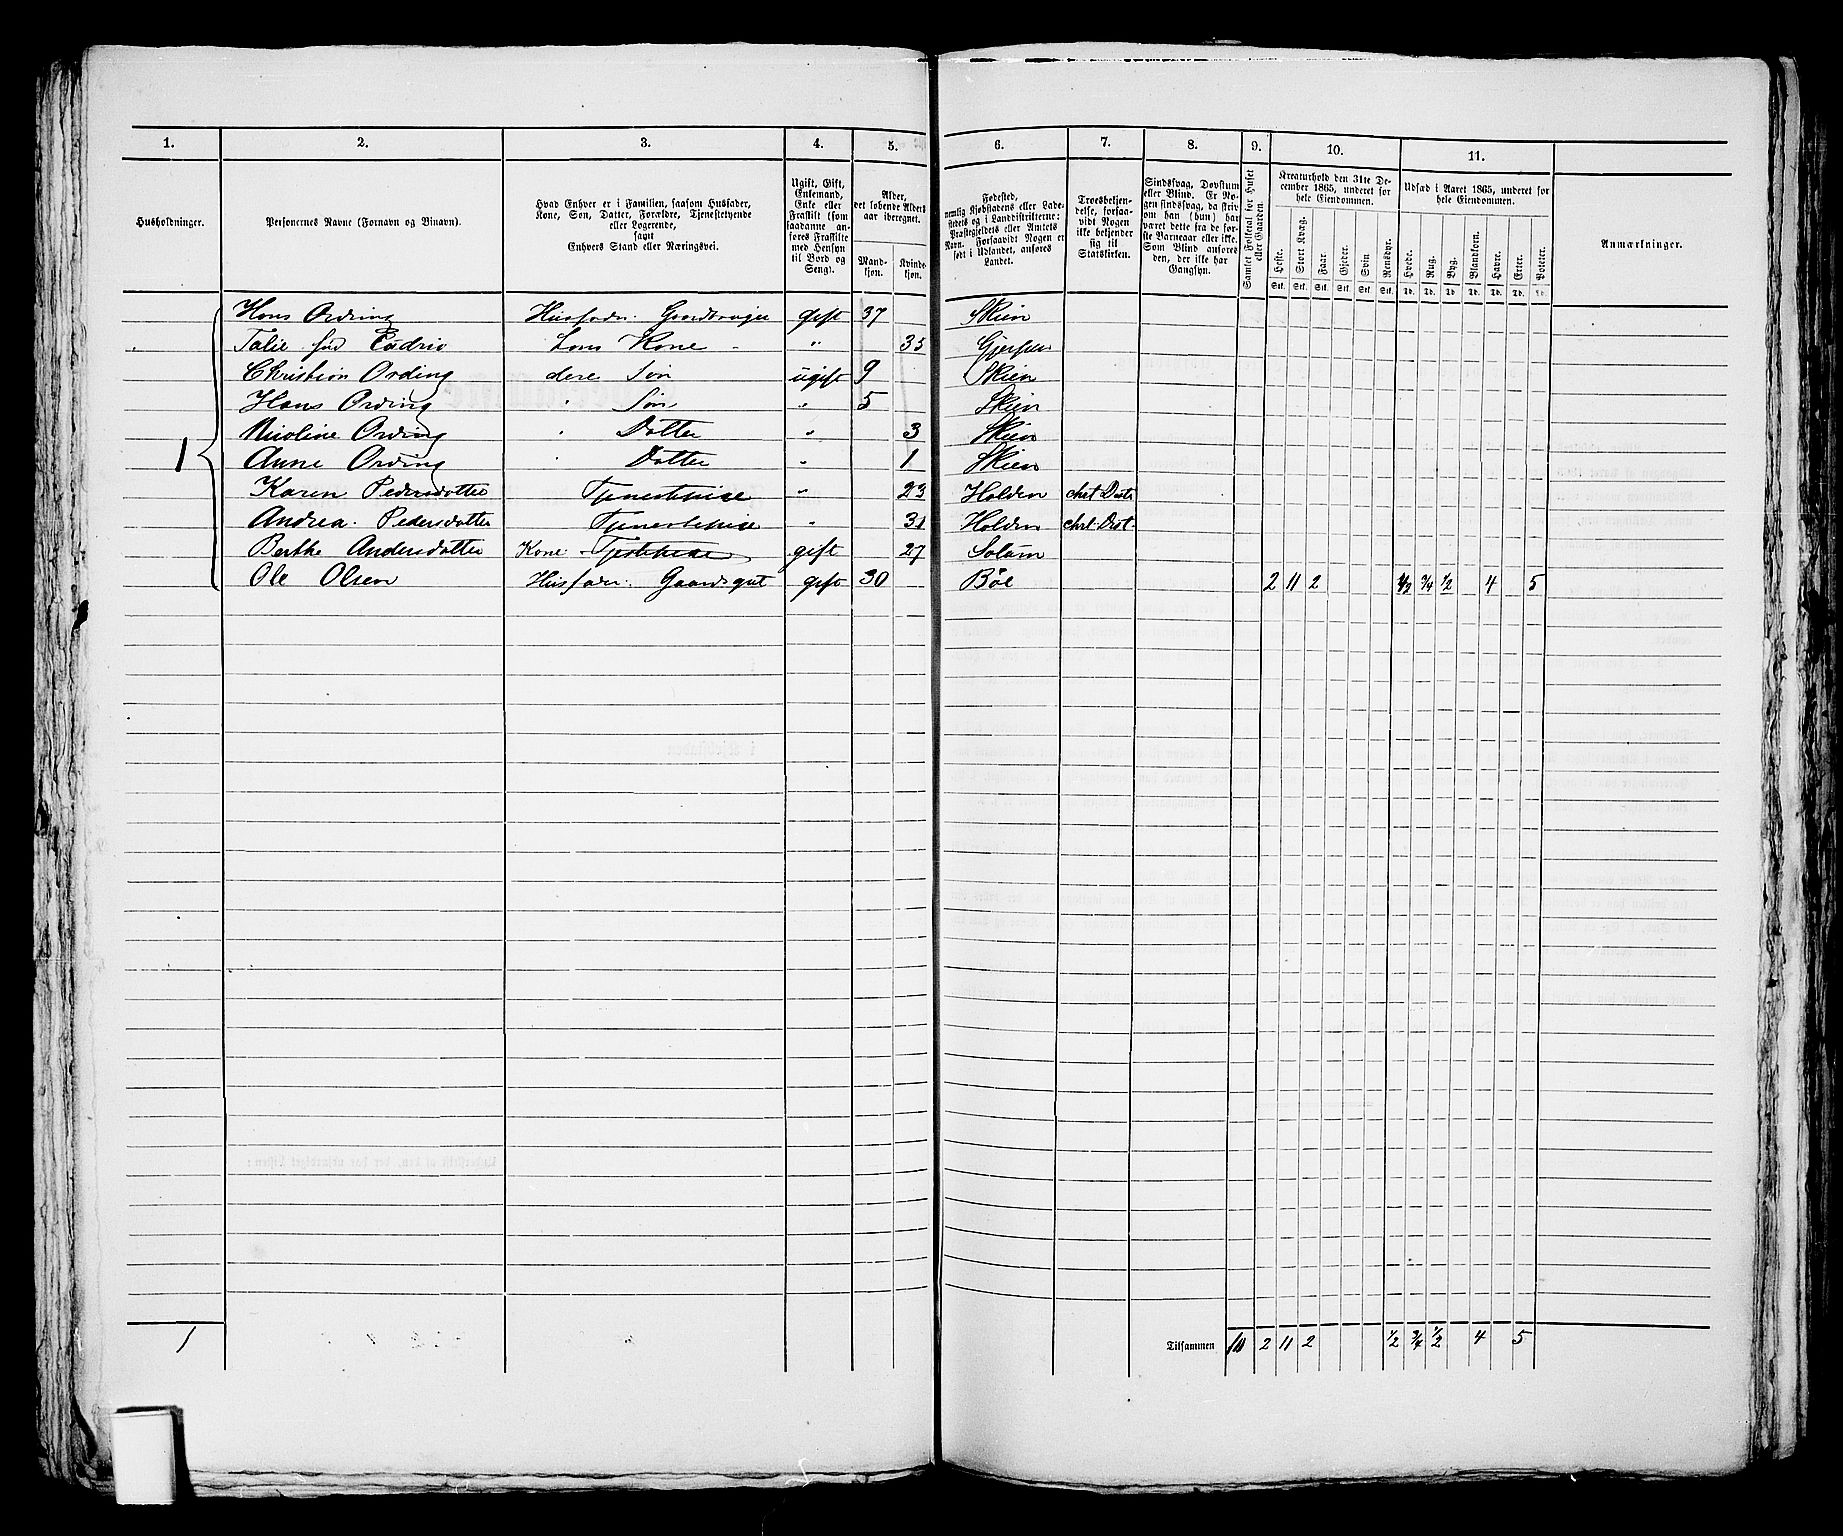 1. 2. 3. 4. 5. 6. 7. 8. 9. 10. 11.
Husholdninger.
Personernes Navne (Fornavn og Binavn).
Hvad Enhver er i Familien, saasom Husfader, Kone, Søn, Datter, Forældre, Tjenestetyende eller Logerende, samt Enhvers Stand eller Næringsvei.
Ugift, Gift, Enkemand, Enke eller Fraskilt (som saadanne anføres Fraskilte med Hensyn til Bord og Seng).
Alder, det løbende Alders aar iberegnet.
Mandkjøn. Kvindekjøn.
Fødested, nemlig Kjøbstadens eller Ladestedets og i Landdistrifterne: Præstegjeldets eller Amtets Navn. Forsaavidt Nogen er født i Udlandet, anføres Landet.
Troesbekjendelse, forsaavidt Nogen ikke bekjender sig til Statskirken.
Sindssvag, Døvstum eller Blind. Er Nogen sindssvag, da skrives om han (hun) har været dette fra de første Barneaar eller ikke. Som Blind anføres den, der ikke har Gangsyn.
Samlet Folketal for Huset eller Gaarden.
Kreaturhold den 31te December 1865, underet for hele Eiendommen.
Heste. Stort Kvæg. Faar. Gjeder. Svin. Rensdyr.
Udsæd i Aaret 1865, underet for hele Eiendommen.
Hvede. Rug. Byg. Blandkorn. Havre. Erter. Poteter.
Anmærkninger.
Stk. Stk. Stk. Stk. Stk. Stk. Td. Td. Td. Td. Td. Td. Td.
Hans Ording Husfader. Gaardbruger gift 37 Skien
Talie fød hans Kone " 35 Gjerpen
Christian Ording dere Søn ugift 9 Skien
Hans Ording " Søn " 5 Skien
Nicoline Ording " Datter " 3 Skien
1 Anne Ording Datter " 1 Skien
Karen Pedersdatter Tjenestepige " 23 Holden
Andrea Pedersdatter Tjenestepige " 31 Holden
Berthe Andersdatter Kone gift 27 Solum
Ole Olsen Husfader. Gaardsgut gift 30 Bøe 2 11 2 1/2 3/4 1/2 4 5
1 Tilsammen 10 2 11 2 1/2 3/4 1/2 4 5